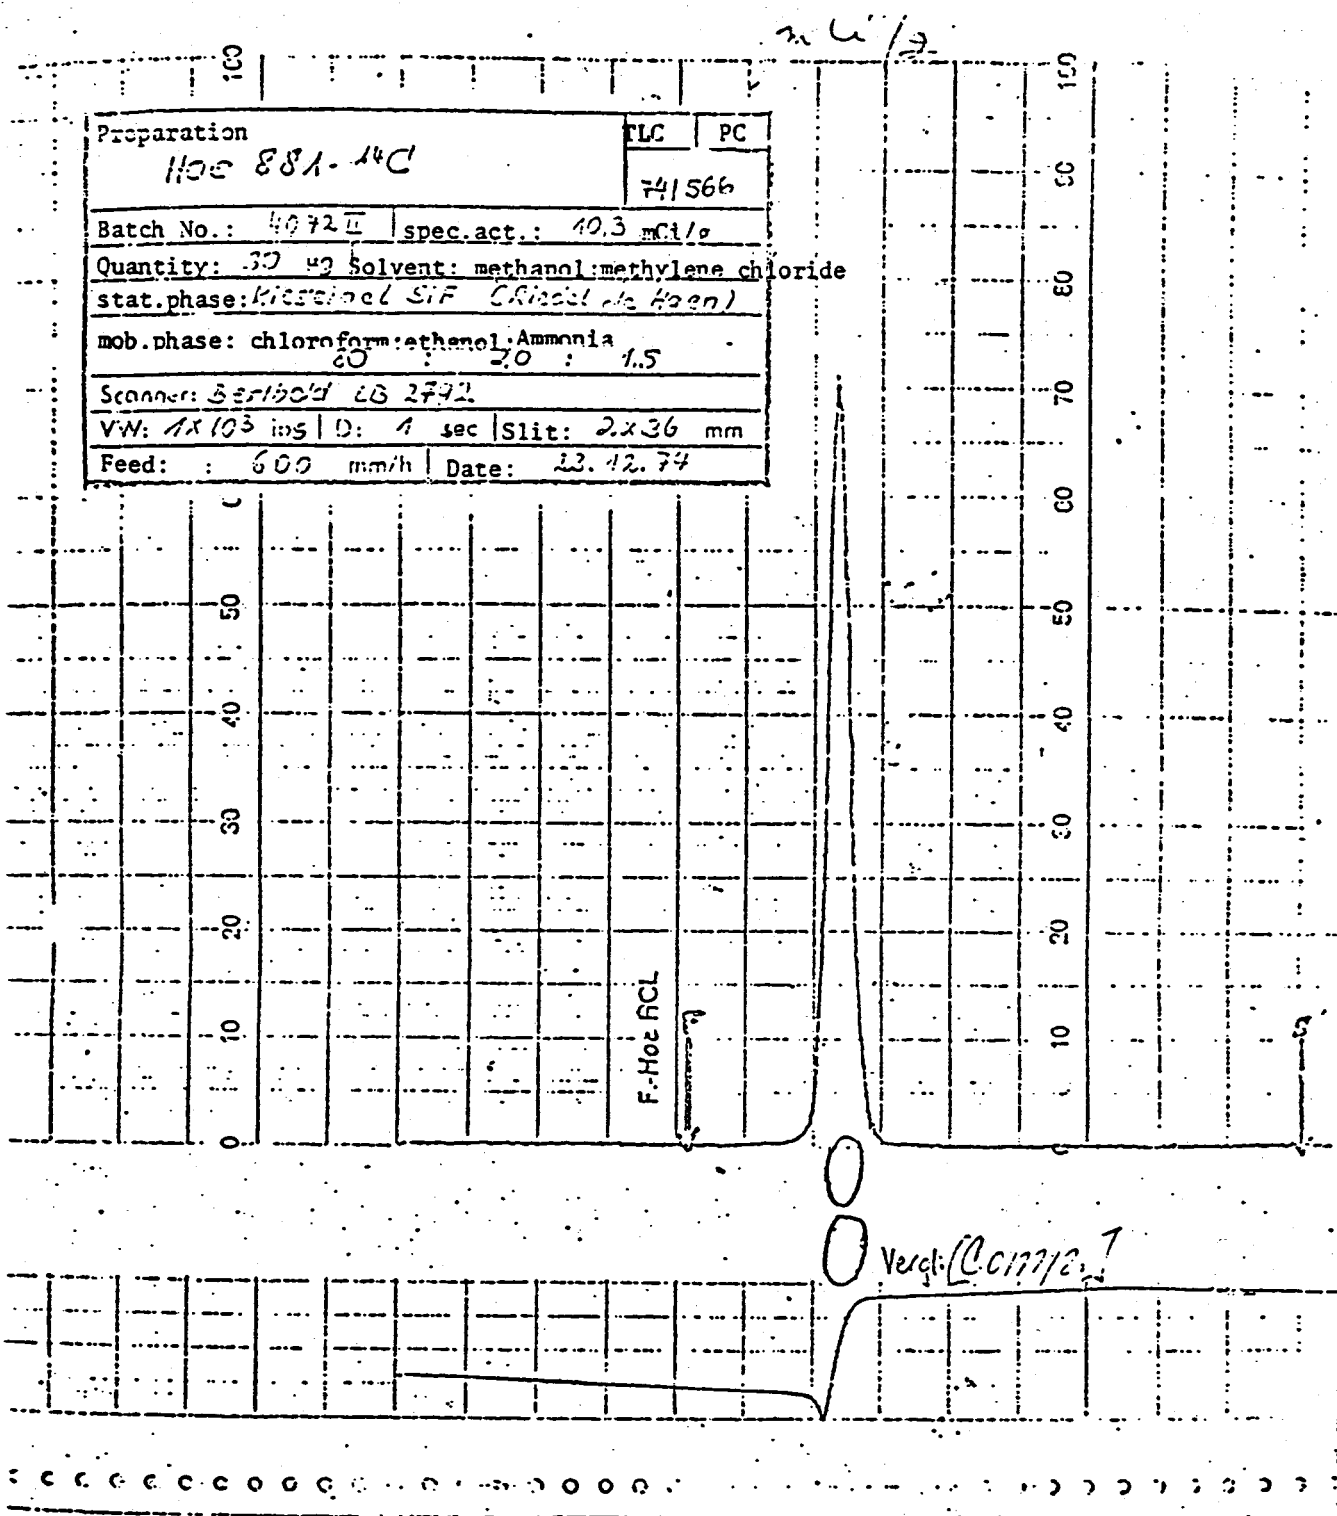 mCi/g
100
100
Preparation TLC PC
Hoe 881-14C
74/566
Batch No.: 4072 II spec.act.: 10,3 mCi/g
Quantity: 30 µg Solvent: methanol:methylene chloride
stat.phase: Kieselgel SiF (Riedel de Haen)
mob.phase: chloroform:ethanol:Ammonia
80 : 20 : 1.5
Scanner: Berthold LB
VW: 1x10³ ips D: 1 sec Slit: 2x36 mm
Feed: : 600 mm/h Date: 23.12.74
90
80
70
60
50
50
40
40
30
30
20
20
10
10
0
0
F.-Hoe ACL
Vergl. [Comp.]